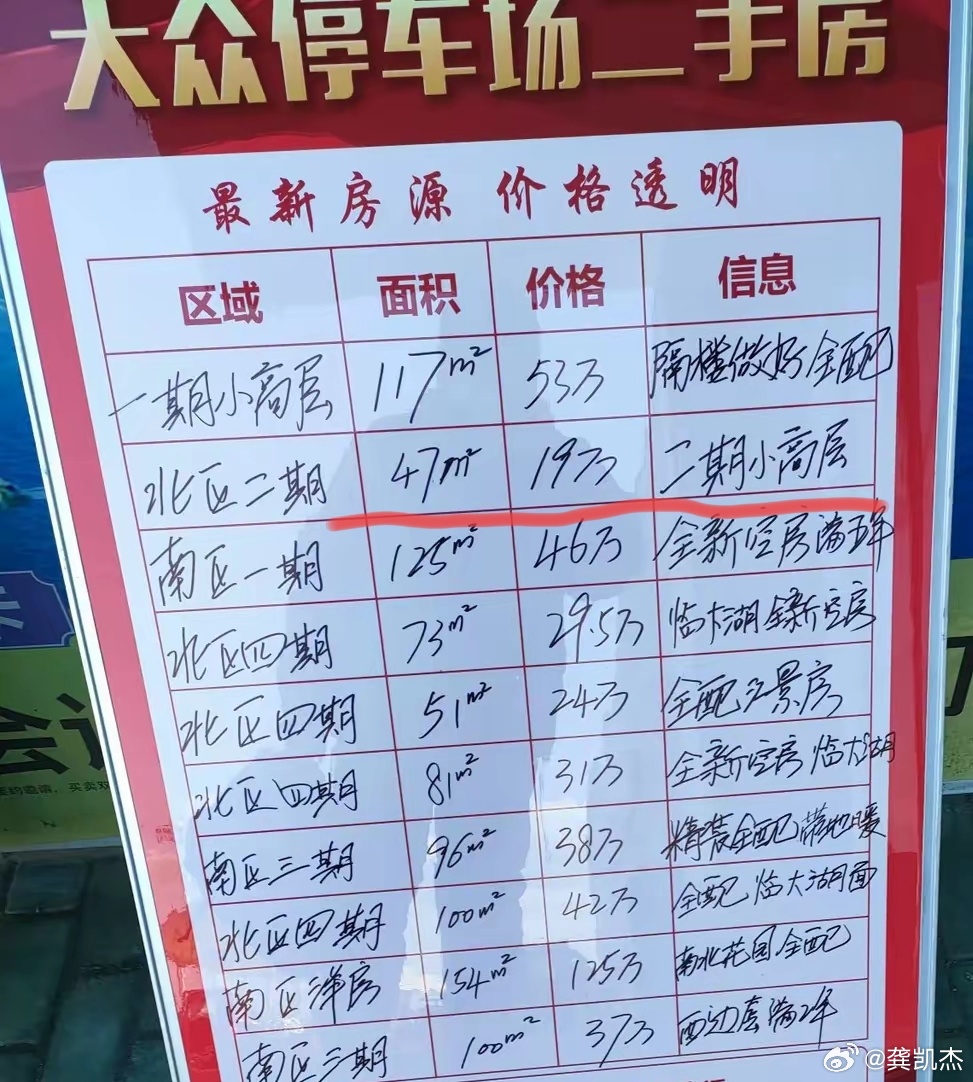 大众停车场二手房
最新房源 价格透明
区域 面积 价格 信息
一期小高层 117m² 53万 隔楼做好全配
北区二期 47m² 19万 二期小高层
南区一期 125m² 46万 全新空房满五年
北区四期 73m² 29.5万 临大湖全新空房
北区四期 51m² 24万 全配江景房
北区四期 81m² 31万 全新空房临大湖
南区三期 96m² 38万 精装全配带地暖
北区四期 100m² 42万 全配临大湖面
南区洋房 154m² 125万 南北花园全配
南区三期 100m² 37万 西边套满2年
@龚凯杰